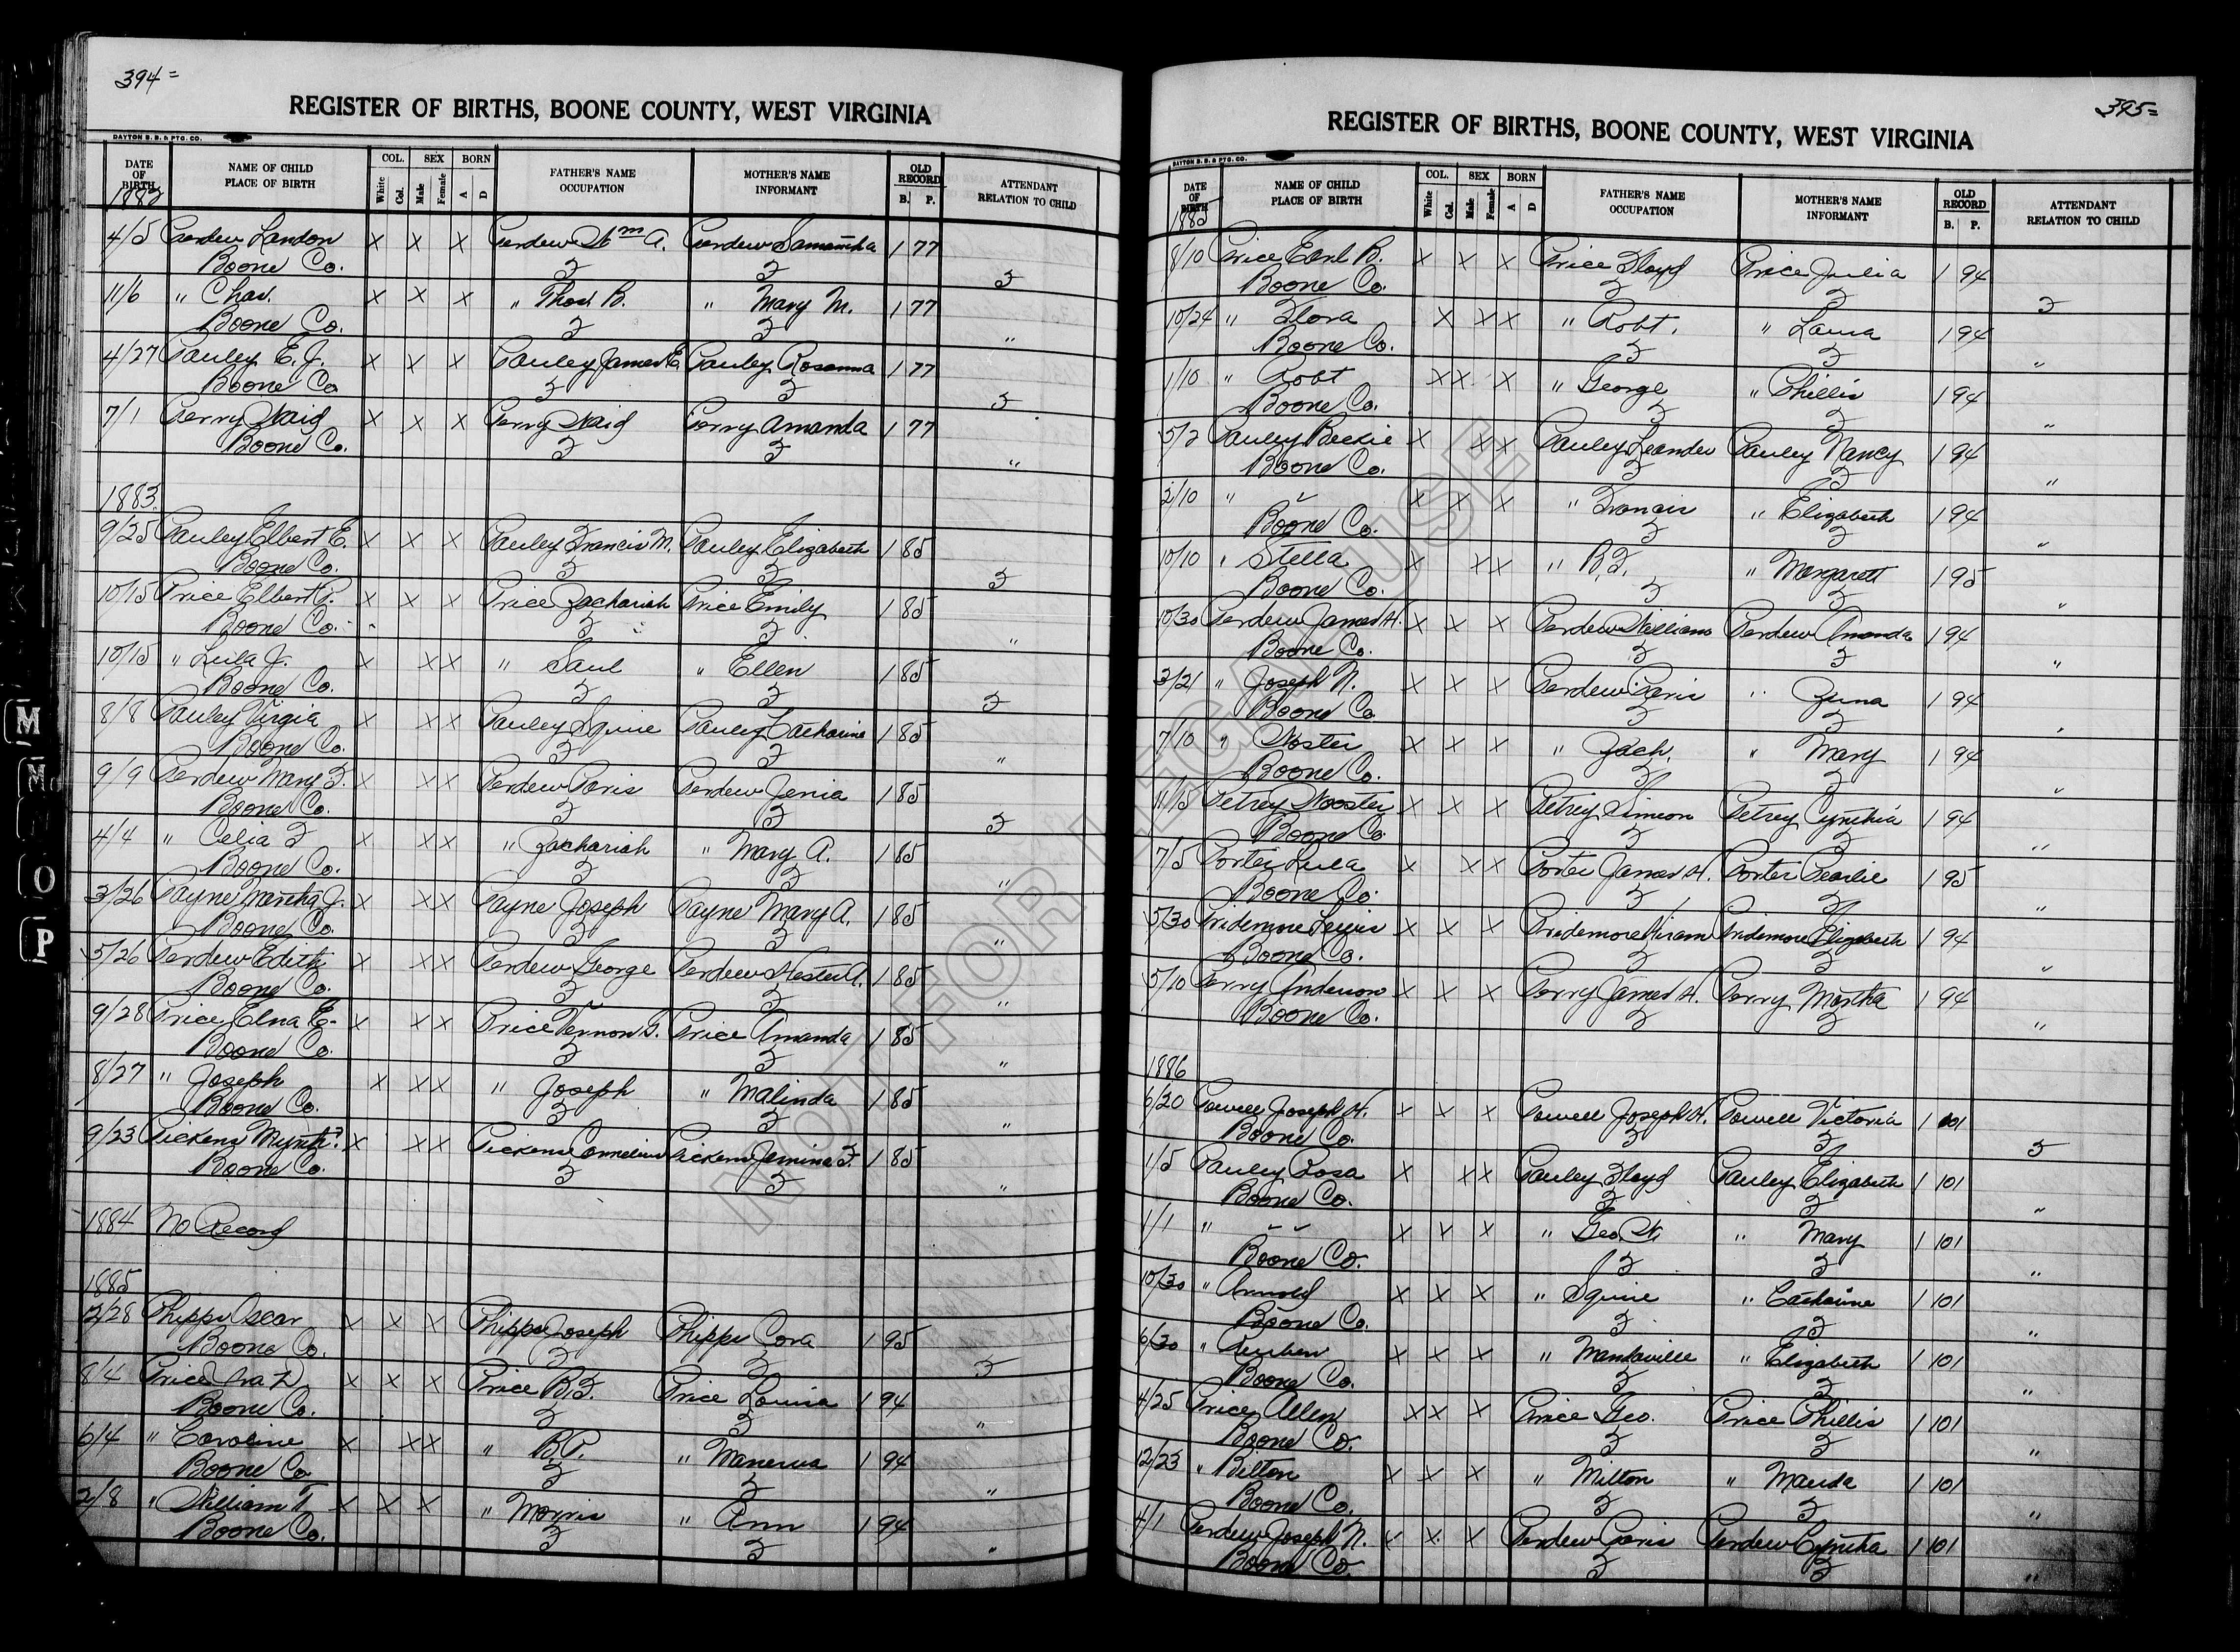 394=
REGISTER OF BIRTHS, BOONE COUNTY, WEST VIRGINIA
DAYTON B. B. & PTG. CO.
DATE OF BIRTH NAME OF CHILD PLACE OF BIRTH COL. White Col. SEX Male Female BORN A D FATHER'S NAME OCCUPATION MOTHER'S NAME INFORMANT OLD RECORD B. P. ATTENDANT RELATION TO CHILD
1882
4/5 Perdew Landon X X X Perdew Wm A. Perdew Samantha 1 77
Boone Co.
11/6 " Chas. X X X " Thos. B. " Mary M. 1 77
Boone Co. "
4/27 Pauley E. J. X X X Pauley James E. Pauley Rosanna 1 77
Boone Co
7/1 Perry Waid X X X Perry Waid Perry Amanda 1 77
Boone Co. "
1883
9/25 Pauley Elbert E. X X X Pauley Francis M. Pauley Elizabeth 1 85
Boone Co.
10/15 Price Elbert P. X X X Price Zachariah Price Emily 1 85
Boone Co. "
10/15 " Lula J. X X X " Saul " Ellen 1 85
Boone Co.
8/8 Pauley Virgia X X X Pauley Squire Pauley Catharine 1 85
Boone Co. "
9/9 Perdew Mary F. X X X Perdew Paris Perdew Jenia 1 85
Boone Co.
4/4 " Celia F X X X " Zachariah " Mary A. 1 85
Boone Co. "
3/26 Payne Martha J. X X X Payne Joseph Payne Mary A. 1 85
Boone Co. "
5/26 Perdew Edith X X X Perdew George Perdew Hester A. 1 85
Boone Co. "
9/28 Price Elna E. X X X Price Vernon G. Price Amanda 1 85
Boone Co. "
8/27 " Joseph X X X " Joseph " Malinda 1 85
Boone Co. "
9/23 Pickens X X X Pickens Cornelius Pickens Jemima F. 1 85
Boone Co. "
1884 No Record
1885
12/28 Phipps Oscar X X X Phipps Joseph Phipps Cora 1 95
Boone Co.
8/4 Price Ira D X X X Price B. F. Price Louisa 1 94
Boone Co. "
6/4 " Caroline X X X " B. P. " Manerva 1 94
Boone Co "
2/8 " William T X X X " Morris " Ann 1 94
Boone Co. "
395=
REGISTER OF BIRTHS, BOONE COUNTY, WEST VIRGINIA
DAYTON B. B. & PTG. CO.
DATE OF BIRTH NAME OF CHILD PLACE OF BIRTH COL. White Col. SEX Male Female BORN A D FATHER'S NAME OCCUPATION MOTHER'S NAME INFORMANT OLD RECORD B. P. ATTENDANT RELATION TO CHILD
1885
8/10 Price Earl B. X X X Price Floyd Price Julia 1 94
Boone Co.
10/24 " Flora X X X " Robt. " Laura 1 94
Boone Co. "
1/10 " Robt X X X " George " Phillis 1 94
Boone Co. "
5/2 Pauley Beckie X X X Pauley Leander Pauley Nancy 1 94
Boone Co. "
2/10 " X X X " Francis " Elizabeth 1 94
Boone Co. "
10/10 " Stella X X X " B. F. " Margarett 1 95
Boone Co. "
10/30 Perdew James H. X X X Perdew William Perdew Amanda 1 94
Boone Co. "
3/21 " Joseph N. X X X Perdew Paris " Zuna 1 94
Boone Co "
7/10 " X X X " Zach. " Mary 1 94
Boone Co. "
11/5 Petrey Wooster X X X Petrey Simeon Petrey Cynthia 1 94
Boone Co. "
7/5 Porter Lula X X X Porter James H. Porter Pearlie 1 95
Boone Co. "
5/30 Pridemore Lewis X X X Pridemore Hiram Pridemore Elizabeth 1 94
Boone Co. "
5/10 Perry Anderson X X X Perry James H. Perry Martha 1 94
Boone Co. "
1886
6/20 Powell Joseph H. X X X Powell Joseph H. Powell Victoria 1 101
Boone Co.
1/5 Pauley Rosa X X X Pauley Floyd Pauley Elizabeth 1 101
Boone Co. "
1/1 " X X X " Geo. W. " Mary 1 101
Boone Co. "
10/30 " Arnold X X X " Squire " Catharine 1 101
Boone Co. "
6/30 " Reuben X X X " Mandaville " Elizabeth 1 101
Boone Co. "
4/25 Price Allen X X X Price Geo. Price Phillis 1 101
Boone Co. "
12/23 " Bilton X X X " Milton " Manda 1 101
Boone Co. "
4/1 Perdew Joseph N. X X X Perdew Paris Perdew Cyntha 1 101
Boone Co. "
NOT FOR LEGAL USE
M
M
O
P